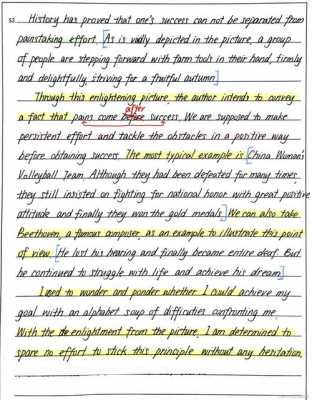 52 History has proved that one's success can not be separated from
painstaking effort. [As is vividly depicted in the picture, a group
of people are stepping forward with farm tools in their hand, firmly
and delightfully, striving for a fruitful autumn]
Through this enlightening picture, the author intends to convey
after
a fact that pains come before success. We are supposed to make
persistent effort and tackle the obstacles in a positive way
before obtaining success. The most typical example is [China Woman's
Volleyball Team. Although they had been defeated for many times
they still insisted on fighting for national honor with great positive
attitude and finally they won the gold medals.] We can also take
Beethoven, a famous composer, as an example to illustrate this point
of view. [He lost his hearing and finally became entire deaf. But
he continued to struggle with life and achieve his dream]
I used to wonder and ponder whether I could achieve my
goal with an alphabet soup of difficulties confronting me.
With the enlightment from the picture, I am determined to
spare no effort to stick this principle without any hesitation.